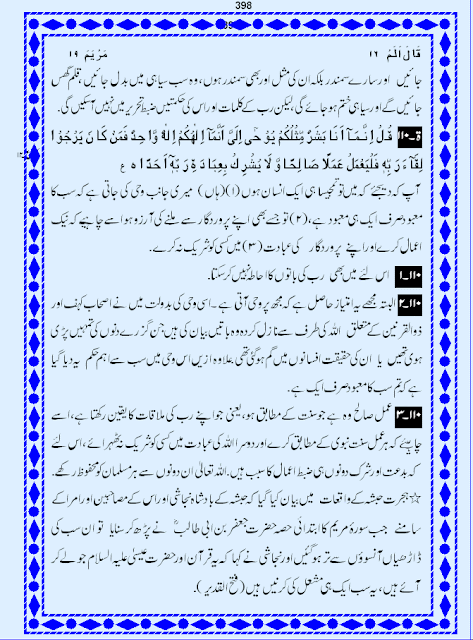 398
قَالَ اَلَمْ ١٦ مَرْيَمَ ١٩
جائیں اور سارے سمندر بلکہ ان کی مثل اور بھی سمندر ہوں، وہ سب سیاہی میں بدل جائیں، قلم گھس
جائیں گے اور سیاہی ختم ہو جائے گی، لیکن رب کے کلمات اور اس کی حکمتیں ضبط تحریر میں نہیں آسکیں گی۔
ق۔۱۱۰ قُلْ اِنَّمَآ اَنَا بَشَرٌ مِّثْلُكُمْ يُوْحٰٓى اِلَىَّ اَنَّمَآ اِلٰهُكُمْ اِلٰهٌ وَّاحِدٌ فَمَنْ كَانَ يَرْجُوْا
لِقَآءَ رَبِّهٖ فَلْيَعْمَلْ عَمَلًا صَالِحًا وَّ لَا يُشْرِكْ بِعِبَادَةِ رَبِّهٖٓ اَحَدًا ه ع
آپ کہ دیجئے کہ میں تو تم جیسا ہی ایک انسان ہوں (۱) (ہاں) میری جانب وحی کی جاتی ہے کہ سب کا
معبود صرف ایک ہی معبود ہے، (۲) تو جسے بھی اپنے پروردگار سے ملنے کی آرزو ہو اسے چاہیے کہ نیک
اعمال کرے اور اپنے پروردگار کی عبادت (۳) میں کسی کو شریک نہ کرے۔
۱۱۰۔۱ اس لئے میں بھی رب کی باتوں کا احاطہ نہیں کر سکتا۔
۱۱۰۔۲ البتہ مجھے یہ امتیاز حاصل ہے کہ مجھ پر وحی آتی ہے۔ اسی وحی کی بدولت میں نے اصحاب کہف اور
ذوالقرنین کے متعلق اللہ کی طرف سے نازل کردہ وہ باتیں بیان کی ہیں جن گزرے دنوں کی تہیں پڑی
ہوئی تھیں یا ان کی حقیقت افسانوں میں گم ہوگئی تھی علاوہ ازیں اس وحی میں سب سے اہم حکم یہ دیا گیا
ہے کہ تم سب کا معبود صرف ایک ہے۔
۱۱۰۔۳ عمل صالح وہ ہے جو سنت کے مطابق ہو، یعنی جو اپنے رب کی ملاقات کا یقین رکھتا ہے، اسے
چاہیئے کہ ہر عمل سنت نبوی کے مطابق کرے اور دوسرا اللہ کی عبادت میں کسی کو شریک نہ ٹھہرائے، اس لئے
کہ بدعت اور شرک دونوں ہی ضبط اعمال کا سبب ہیں۔ اللہ تعالیٰ ان دونوں سے ہر مسلمان کو محفوظ رکھے۔
☆ ہجرت حبشہ کے واقعات میں بیان کیا گیا کہ حبشہ کے بادشاہ نجاشی اور اس کے مصاحبین اور امرا کے
سامنے جب سورۂ مریم کا ابتدائی حصہ حضرت جعفر بن ابی طالبؓ نے پڑھ کر سنایا تو ان سب کی
ڈاڑھیاں آنسوؤں سے تر ہوگئیں اور نجاشی نے کہا کہ یہ قرآن اور حضرت عیسیٰ علیہ السلام جو لے کر
آئے ہیں، یہ سب ایک ہی مشعل کی کرنیں ہیں (فتح القدیر)۔